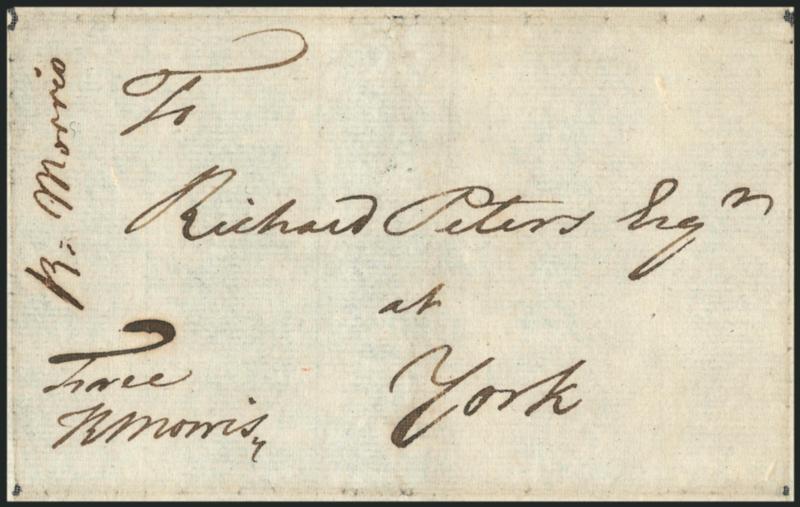 To
Richard Peters Esqr
at
York
Free
RMorris
R: Morris